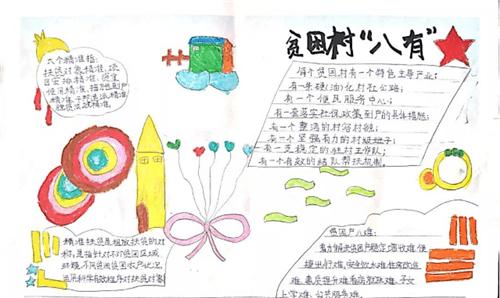 贫困村“八有”
六个精准指:
扶贫对象精准,项
目安排精准,资金
使用精准,措施到户
精准,因村派人精准,
脱贫成效精准。
每个贫困村有一个特色主导产业;
有一条硬(油)化村社公路;
有一个便民服务中心;
有一套落实社保政策到户的具体措施;
有一个整洁的村容村貌;
有一个坚强有力的村级班子;
有一支稳定的驻村工作队;
有一个有效的结队帮扶机制。
精准扶贫是粗放扶贫的对
称,是指针对不同贫困区域
环境、不同贫困农户状况,
运用科学有效程序对扶贫对象
贫困户八难:
着力解决贫困户稳定增收难、便
捷出行难、安全饮水难、住房改造
难、素质提升难、看病就医难、子女
上学难、公共服务难。